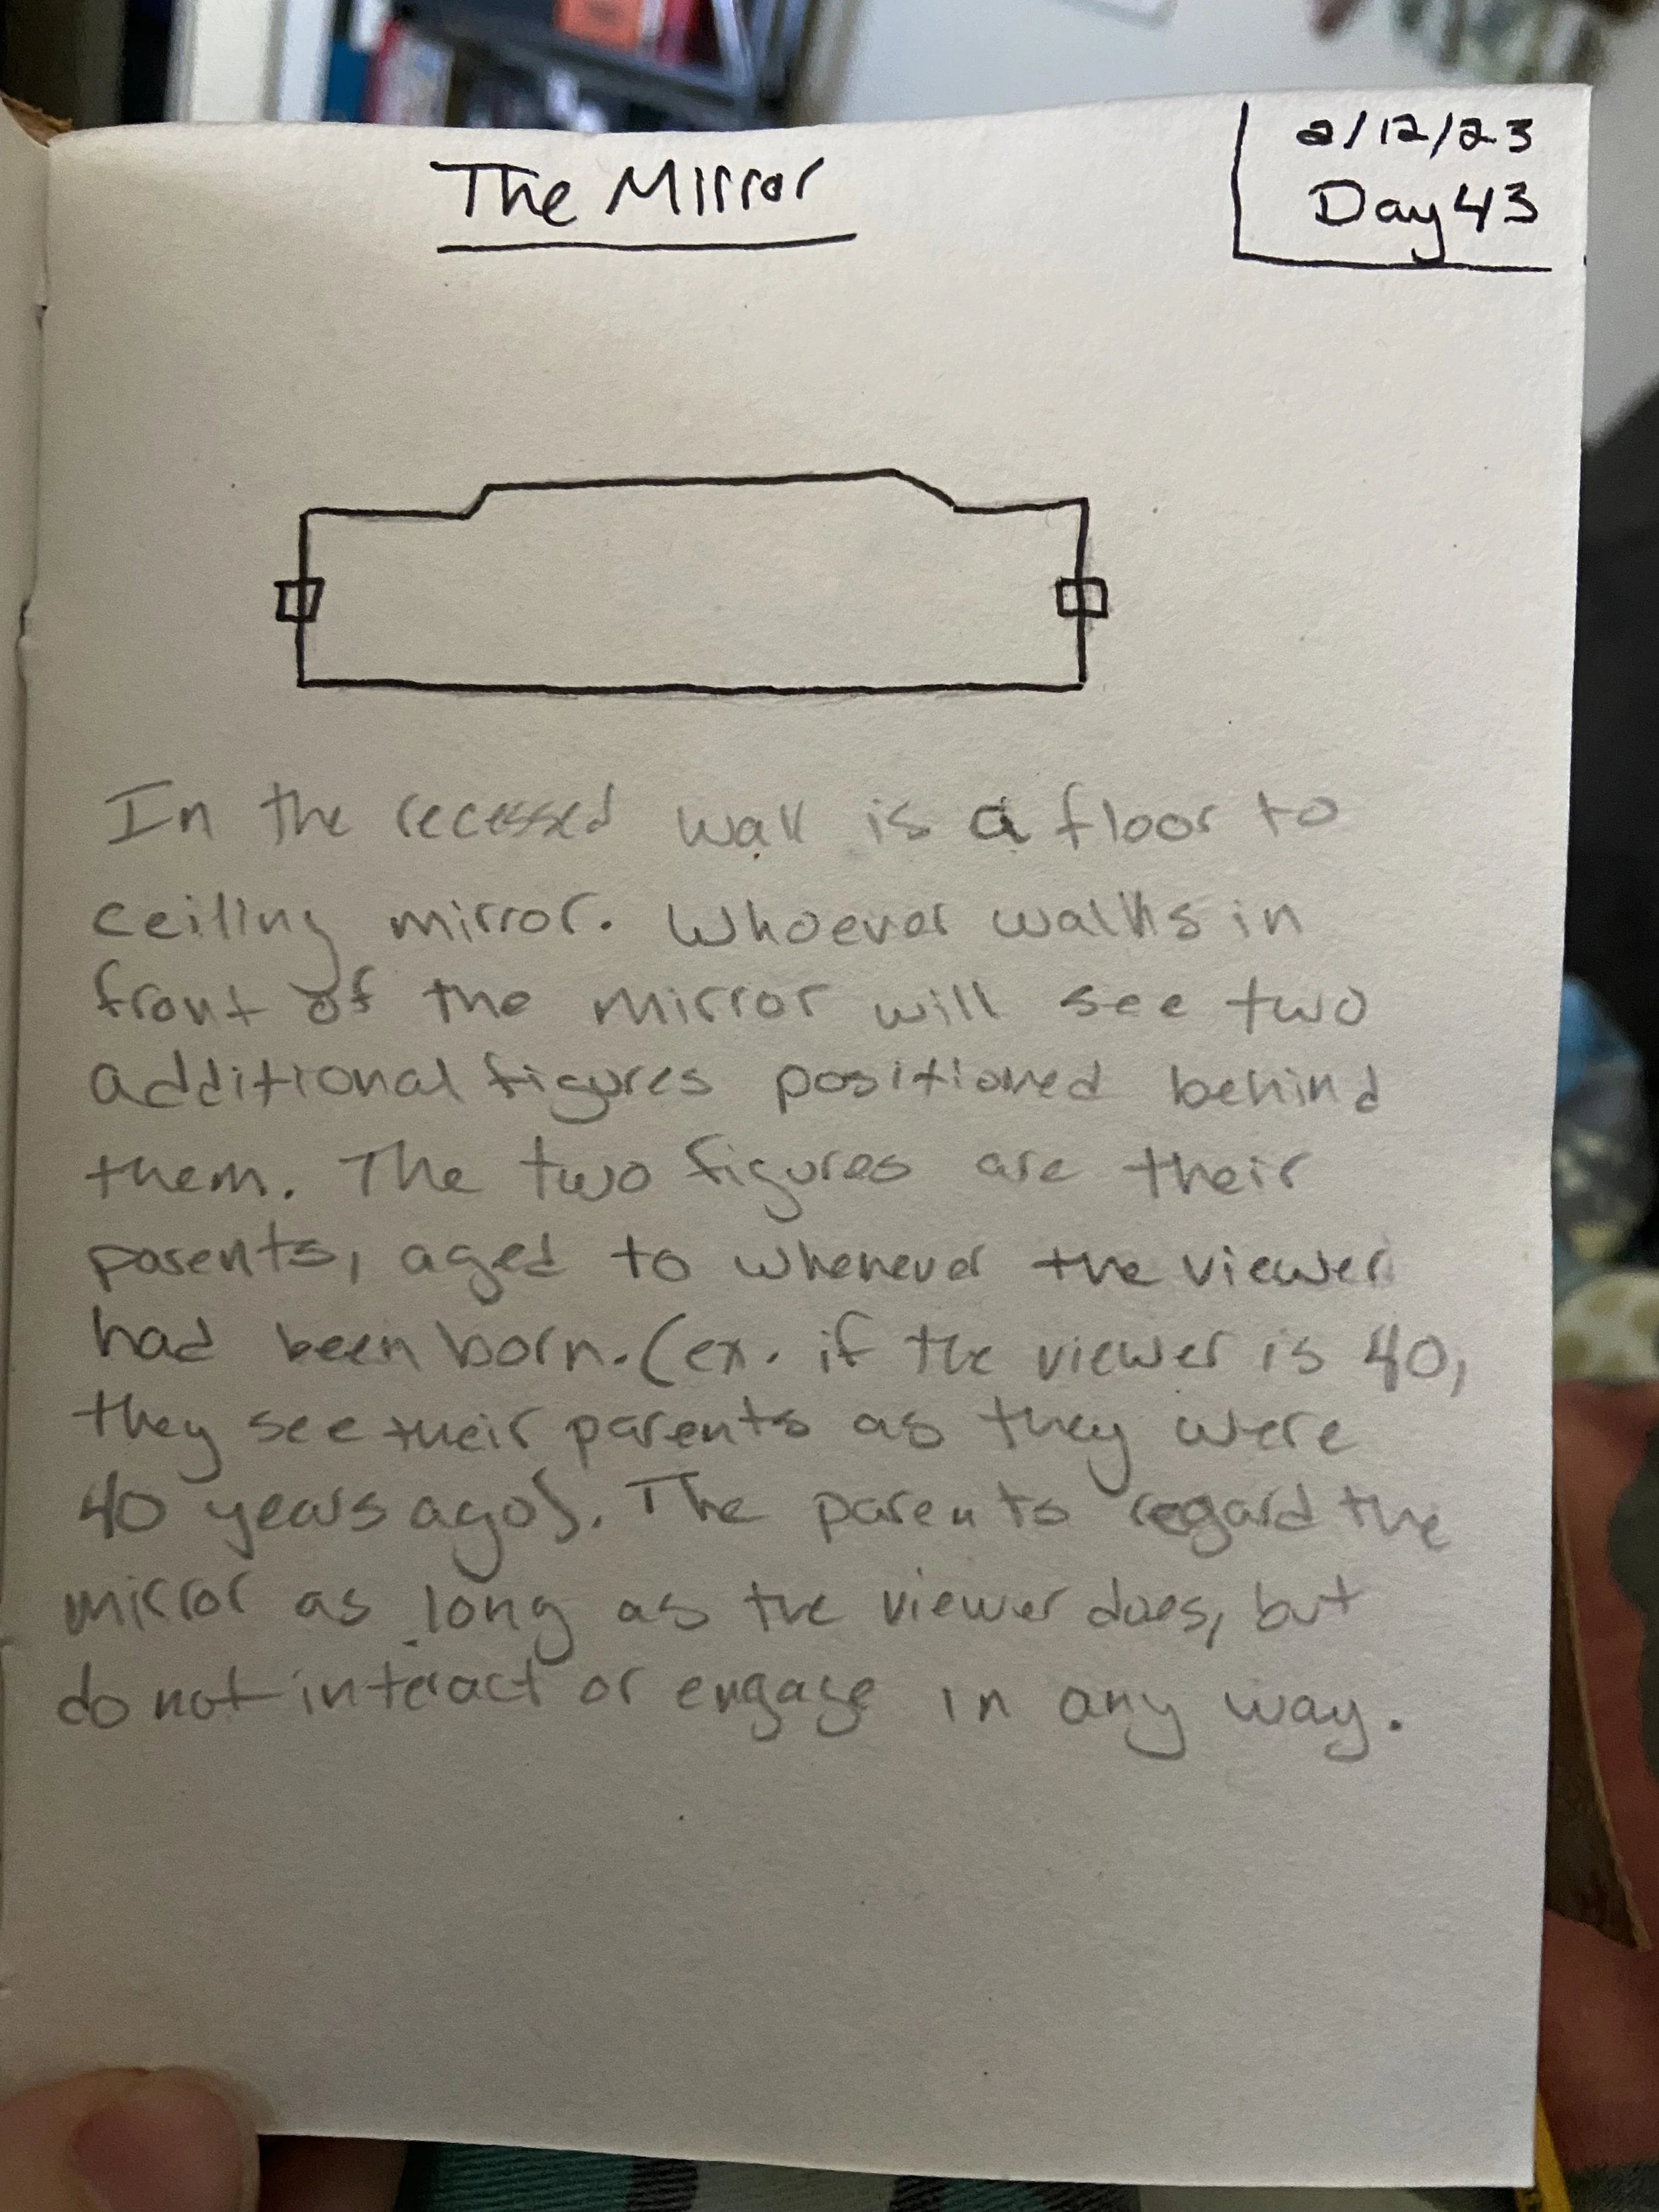 The Mirror
2/12/23
Day 43
In the recessed wall is a floor to
ceiling mirror. Whoever walks in
front of the mirror will see two
additional figures positioned behind
them. The two figures are their
parents, aged to whenever the viewer
had been born. (ex. if the viewer is 40,
they see their parents as they were
40 years ago). The parents regard the
mirror as long as the viewer does, but
do not interact or engage in any way.